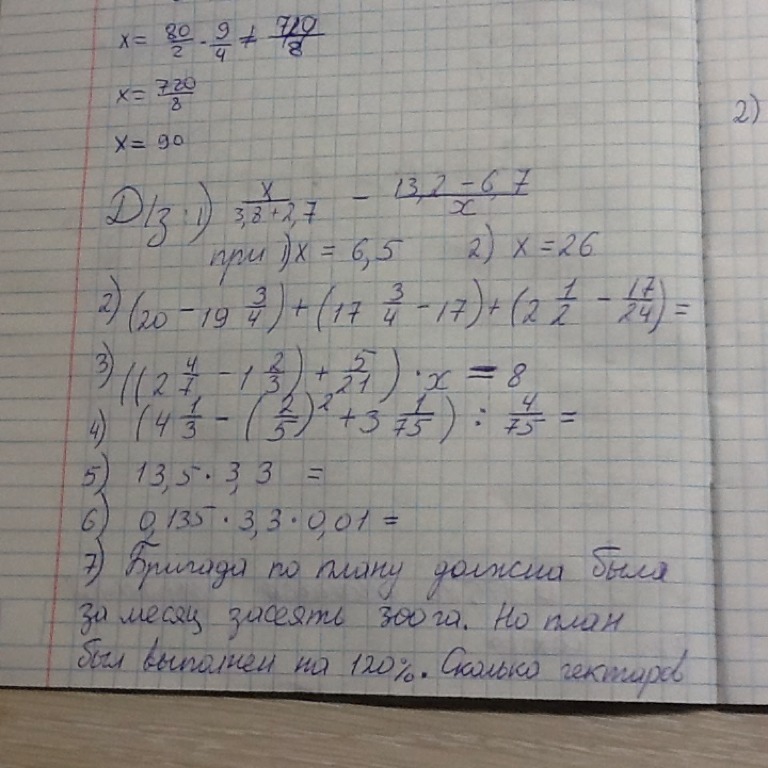 x = 80/2 · 9/4 ≠ 720/8
x = 720/8
x = 90
2)
Д/з: 1) x/(3,8+2,7) - (13,2-6,7)/x
при 1) x = 6,5 2) x = 26
2) (20 - 19 3/4) + (17 3/4 - 17) + (2 1/2 - 17/24) =
3) ((2 4/7 - 1 2/3) + 5/21) · x = 8
4) (4 1/3 - (2/5)² + 3 1/75) : 4/75 =
5) 13,5 · 3,3 =
6) 0,135 · 3,3 · 0,01 =
7) Бригада по плану должна была
за месяц засеять 300 га. Но план
был выполнен на 120%. Сколько гектаров